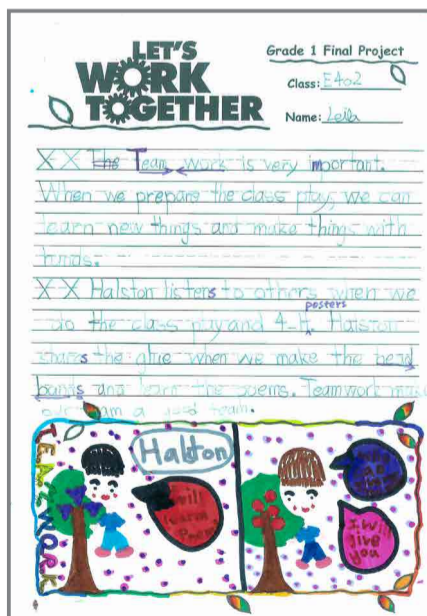 LET'S
WORK
TOGETHER
Grade 1 Final Project
Class: E402
Name: Leila
X X The Team work is very important.
When we prepare the class play, we can
learn new things and make things with
hands.
X X Halston listens to others when we
posters
do the class play and 4-H. Halston
shares the glue when we make the head
bands and learn the poems. Teamwork
our team a good team.
TEAMWORK
Halston
I will
give
you